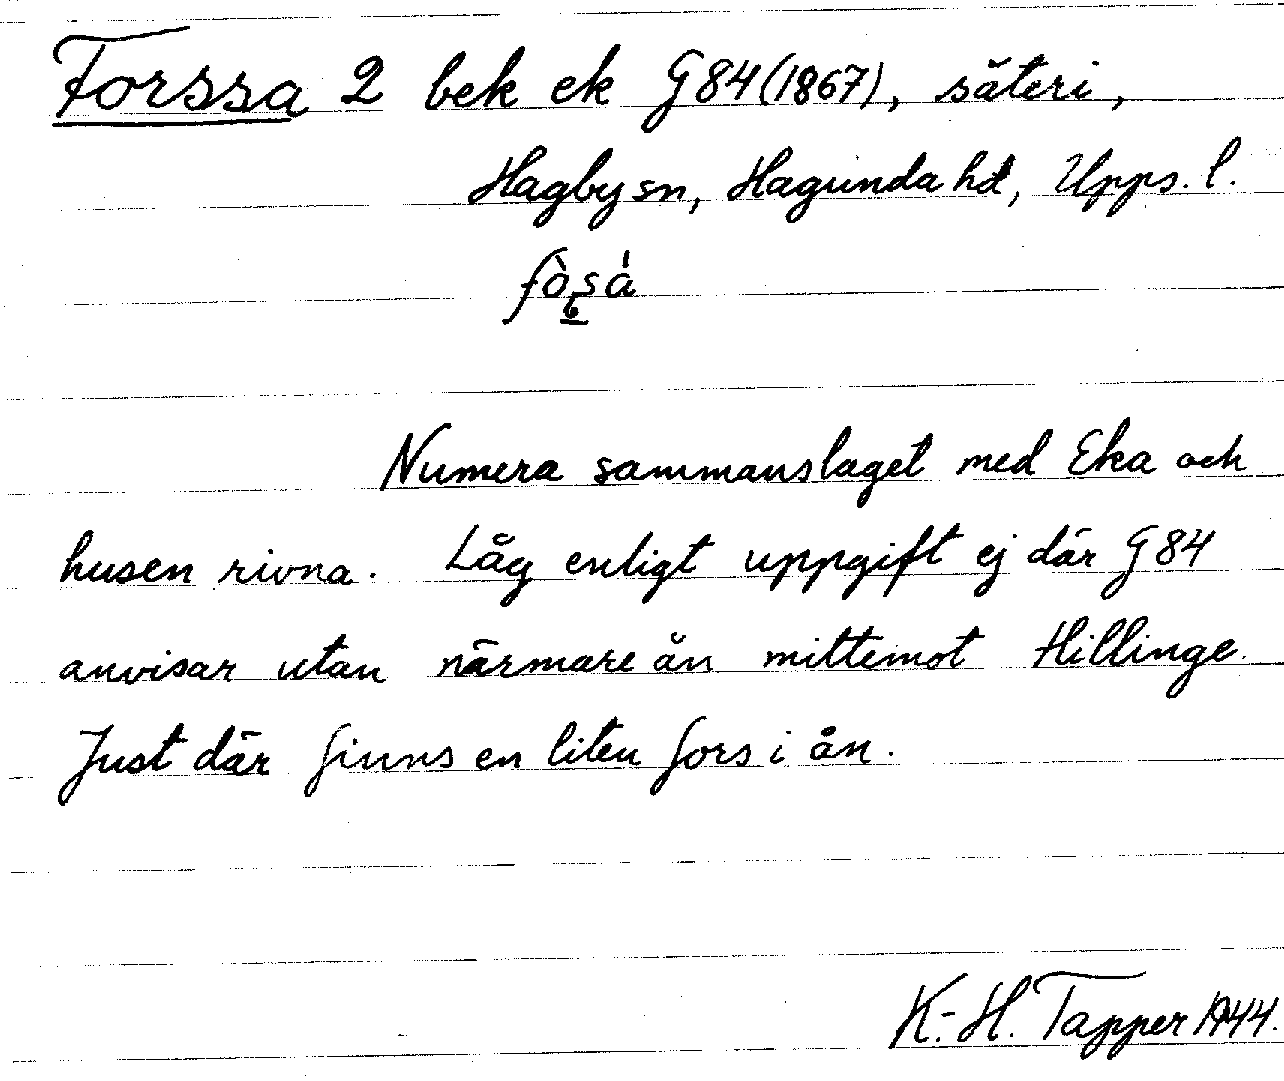 Forssa 2 bek ek G84(1867), säteri,
Hagby sn, Hagunda hd, Upps. l.
Numera sammanslaget med Eka och
husen rivna. Låg enligt uppgift ej där G84
anvisar utan närmare ån mittemot Hillinge.
Just där finns en liten fors i ån.
K.-H. Tapper 1944.